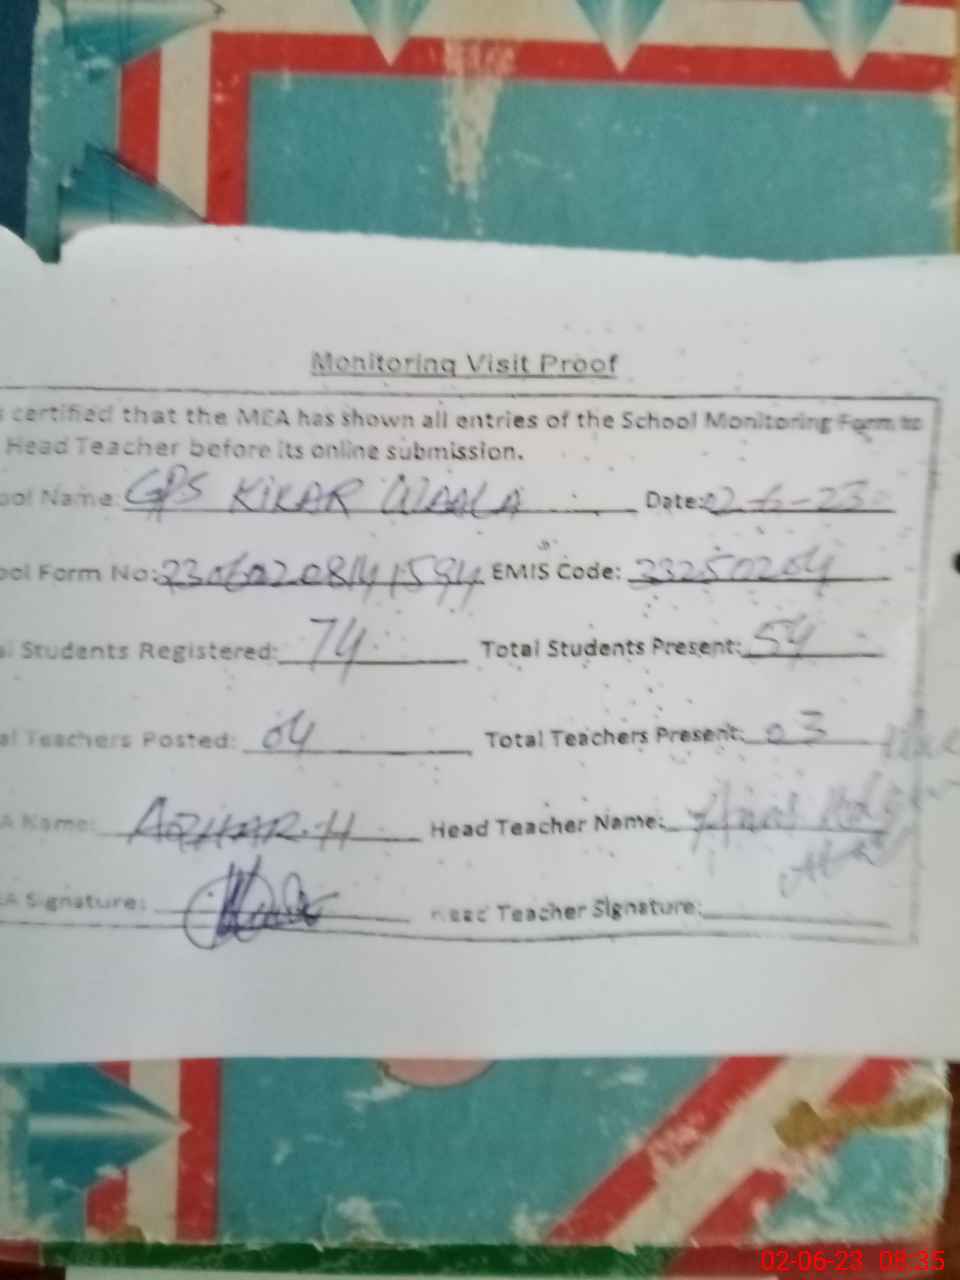 Monitoring Visit Proof
certified that the MEA has shown all entries of the School Monitoring Form to
Head Teacher before its online submission.
ool Name: GPS KIKAR WAALA Date: 02-6-23
ool Form No: EMIS Code: 33250204
Students Registered: 74 Total Students Present: 54
al Teachers Posted: 04 Total Teachers Present: 03
A Name: AZHAR.H Head Teacher Name:
A Signature: Head Teacher Signature:
02-06-23 08:35